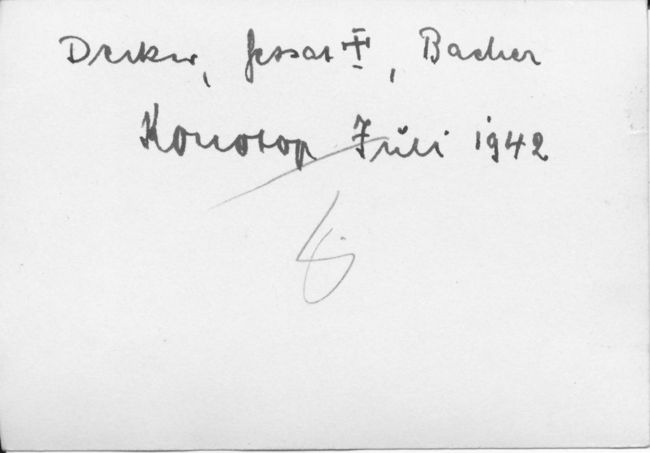 Decker, Jessat ‡, Bacher
Konotop Juli 1942